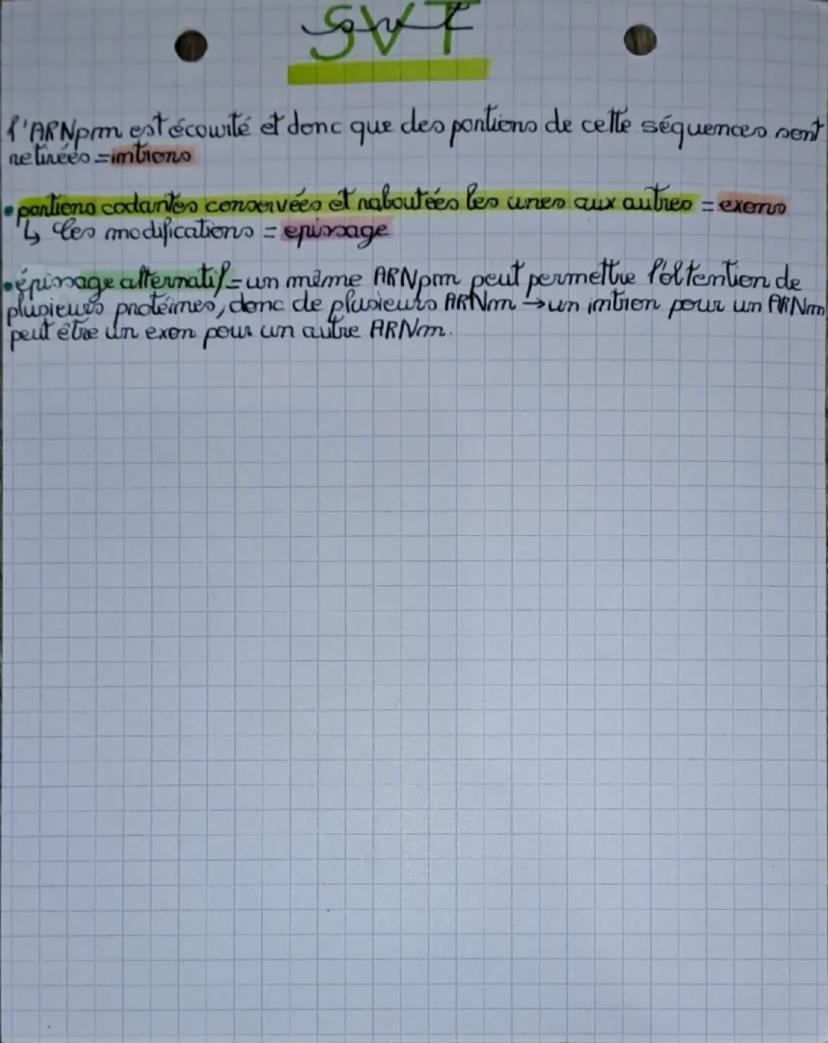 SVT
l'ARNpm est écourté et donc que des portions de cette séquences sont
retirées = introns
• portions codantes conservées et raboutées les unes aux autres = exons
↳ les modifications = epissage
• épissage alternatif = un même ARNpm peut permettre l'obtention de
plusieurs protéines, donc de plusieurs ARNm → un intron pour un ARNm
peut être un exon pour un autre ARNm.